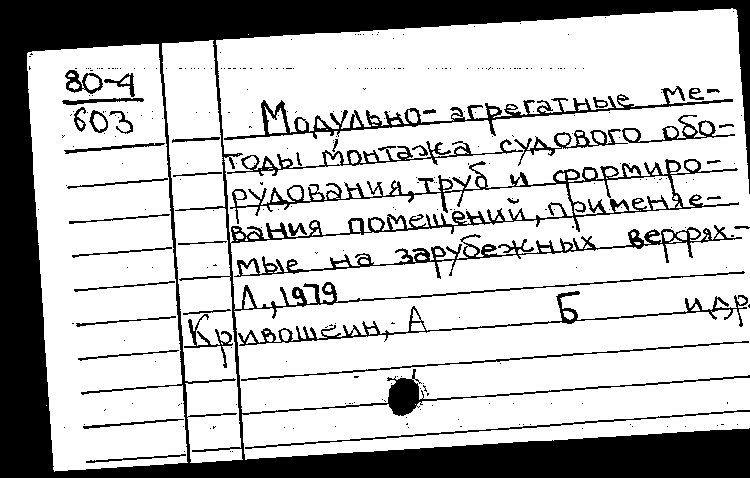 80-4
603
Модульно-агрегатные ме-
тоды монтажа судового обо-
рудования, труб и формиро-
вания помещений, применяе-
мые на зарубежных верфях.-
Л., 1979
Кривошеин, А Б и др